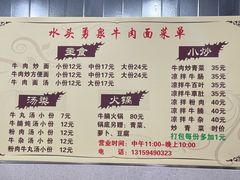 水头勇泉牛肉面菜单
主食
牛肉炒面 小份12元 中份17元 大份24元
牛肉炒方便面 小份12元 中份17元 大份24元
牛肉面汤 小份12元 中份17元 大份24元
汤类
牛丸汤 小份 7元
牛肚汤 小份 12元
粉肠汤 小份 12元
牛肉汤 小份 12元
牛杂汤 小份 12元
粉肉牛丸汤小份12元
火锅
牛腩火锅 80元
锅底另赠：青菜、
萝卜、豆腐
小炒
牛肉炒青菜 35元
凉拌牛肠 35元
凉拌牛百叶 35元
凉拌牛肚 35元
凉拌牛肉 35元
凉拌牛筋 35元
凉拌牛杂 35元
炒青菜 时价
打包每份多加1元
营业时间：中午11:00-晚上10:00
电话：13159490323